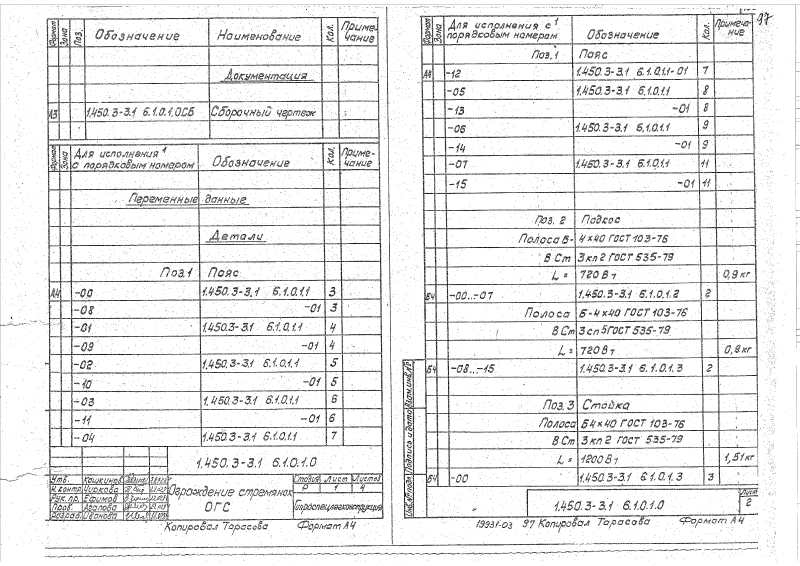 Формат Зона Поз. Обозначение Наименование Кол. Примечание
Документация
А3 1.450.3-3.1 6.1.0.1.0СБ Сборочный чертеж
Формат Зона Для исполнения¹ с порядковым номером Обозначение Кол. Примечание
Переменные данные
Детали
Поз.1 Пояс
А4 -00 1.450.3-3.1 6.1.0.1.1 3
-08 -01 3
-01 1.450.3-3.1 6.1.0.1.1 4
-09 -01 4
-02 1.450.3-3.1 6.1.0.1.1 5
-10 -01 5
-03 1.450.3-3.1 6.1.0.1.1 6
-11 -01 6
-04 1.450.3-3.1 6.1.0.1.1 7
1.450.3-3.1 6.1.0.1.0
Утв. Кошкинов
Н.контр. Чиркова
Рук. пр. Ефимов
Пров. Агапова
Разраб. Иванова
Ограждение стремянок ОГС
Стадия Лист Листов
Р 1 4
Гипроспецлегконструкция
Копировал Тарасова Формат А4
97
Формат Зона Для исполнения с¹ порядковым номерам Обозначение Кол. Примечание
Поз.1 Пояс
А4 -12 1.450.3-3.1 6.1.0.1.1-01 7
-05 1.450.3-3.1 6.1.0.1.1 8
-13 -01 8
-06 1.450.3-3.1 6.1.0.1.1 9
-14 -01 9
-07 1.450.3-3.1 6.1.0.1.1 11
-15 -01 11
Поз. 2 Подкос
Полоса Б- 4×40 ГОСТ 103-76
В Ст 3кп2 ГОСТ 535-79
L = 720 Вт 0,9 кг
Б4 -00..-07 1.450.3-3.1 6.1.0.1.2 2
Полоса Б-4×40 ГОСТ 103-76
В Ст 3сп5ГОСТ 535-79
L = 720 Вт 0,9 кг
Б4 -08..-15 1.450.3-3.1 6.1.0.1.3 2
Поз.3 Стойка
Полоса Б4×40 ГОСТ 103-76
В Ст 3кп2 ГОСТ 535-79
L = 1200 Вт 1,51 кг
Б4 -00 1.450.3-3.1 6.1.0.1.3 3
Инв.№подл. Подпись и дата Взам.инв.№
1.450.3-3.1 6.1.0.1.0 Лист 2
19931-03 97 Копировал Тарасова Формат А4